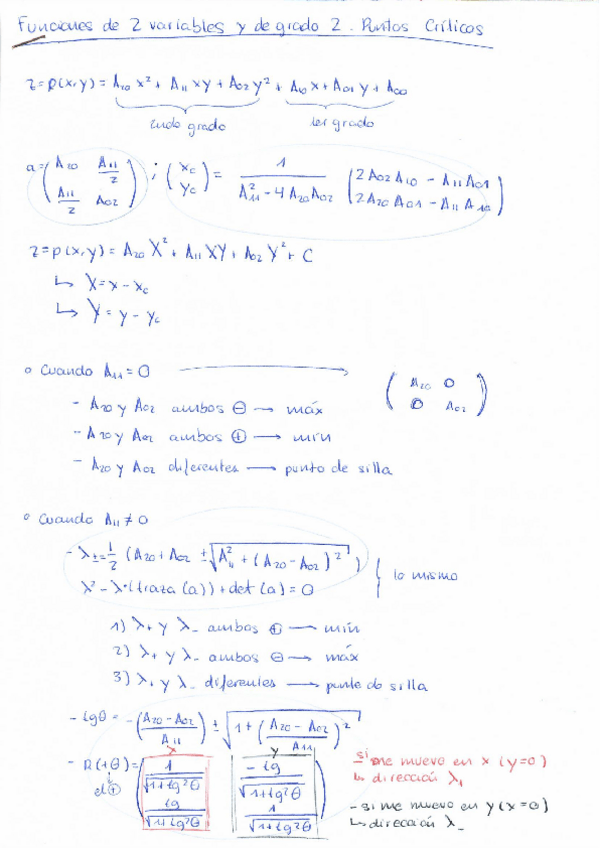 Funciones de 2 variables y de grado 2. Puntos Críticos
z = p(x,y) = A₂₀ x² + A₁₁ xy + A₀₂ y² + A₁₀ x + A₀₁ y + A₀₀
2ndo grado 1er grado
a = (A₂₀ A₁₁/2 ; A₁₁/2 A₀₂) ; (x_c ; y_c) = 1/(A₁₁² - 4 A₂₀ A₀₂) (2 A₀₂ A₁₀ - A₁₁ A₀₁ ; 2 A₂₀ A₀₁ - A₁₁ A₁₀)
z = p(x,y) = A₂₀ X² + A₁₁ XY + A₀₂ Y² + C
↳ X = x - x_c
↳ Y = y - y_c
○ Cuando A₁₁ = 0 ⟶ (A₂₀ 0 ; 0 A₀₂)
- A₂₀ y A₀₂ ambos ⊖ → máx
- A₂₀ y A₀₂ ambos ⊕ → mín
- A₂₀ y A₀₂ diferentes → punto de silla
○ Cuando A₁₁ ≠ 0
- λ± = 1/2 (A₂₀ + A₀₂ ± √(A₁₁² + (A₂₀ - A₀₂)²))
λ² - λ·(traza (a)) + det (a) = 0 } lo mismo
1) λ₊ y λ₋ ambos ⊕ → mín
2) λ₊ y λ₋ ambos ⊖ → máx
3) λ₊ y λ₋ diferentes → punto de silla
- tgθ = -((A₂₀ - A₀₂)/A₁₁) ± √(1 + ((A₂₀ - A₀₂)/A₁₁)²)
x y
- R(+θ) = (1/√(1+tg²θ) -tg/√(1+tg²θ) ; tg/√(1+tg²θ) 1/√(1+tg²θ))
↓
el ⊕
- si me muevo en x (y=0)
↳ dirección λ₁
- si me muevo en y (x=0)
↳ dirección λ₋